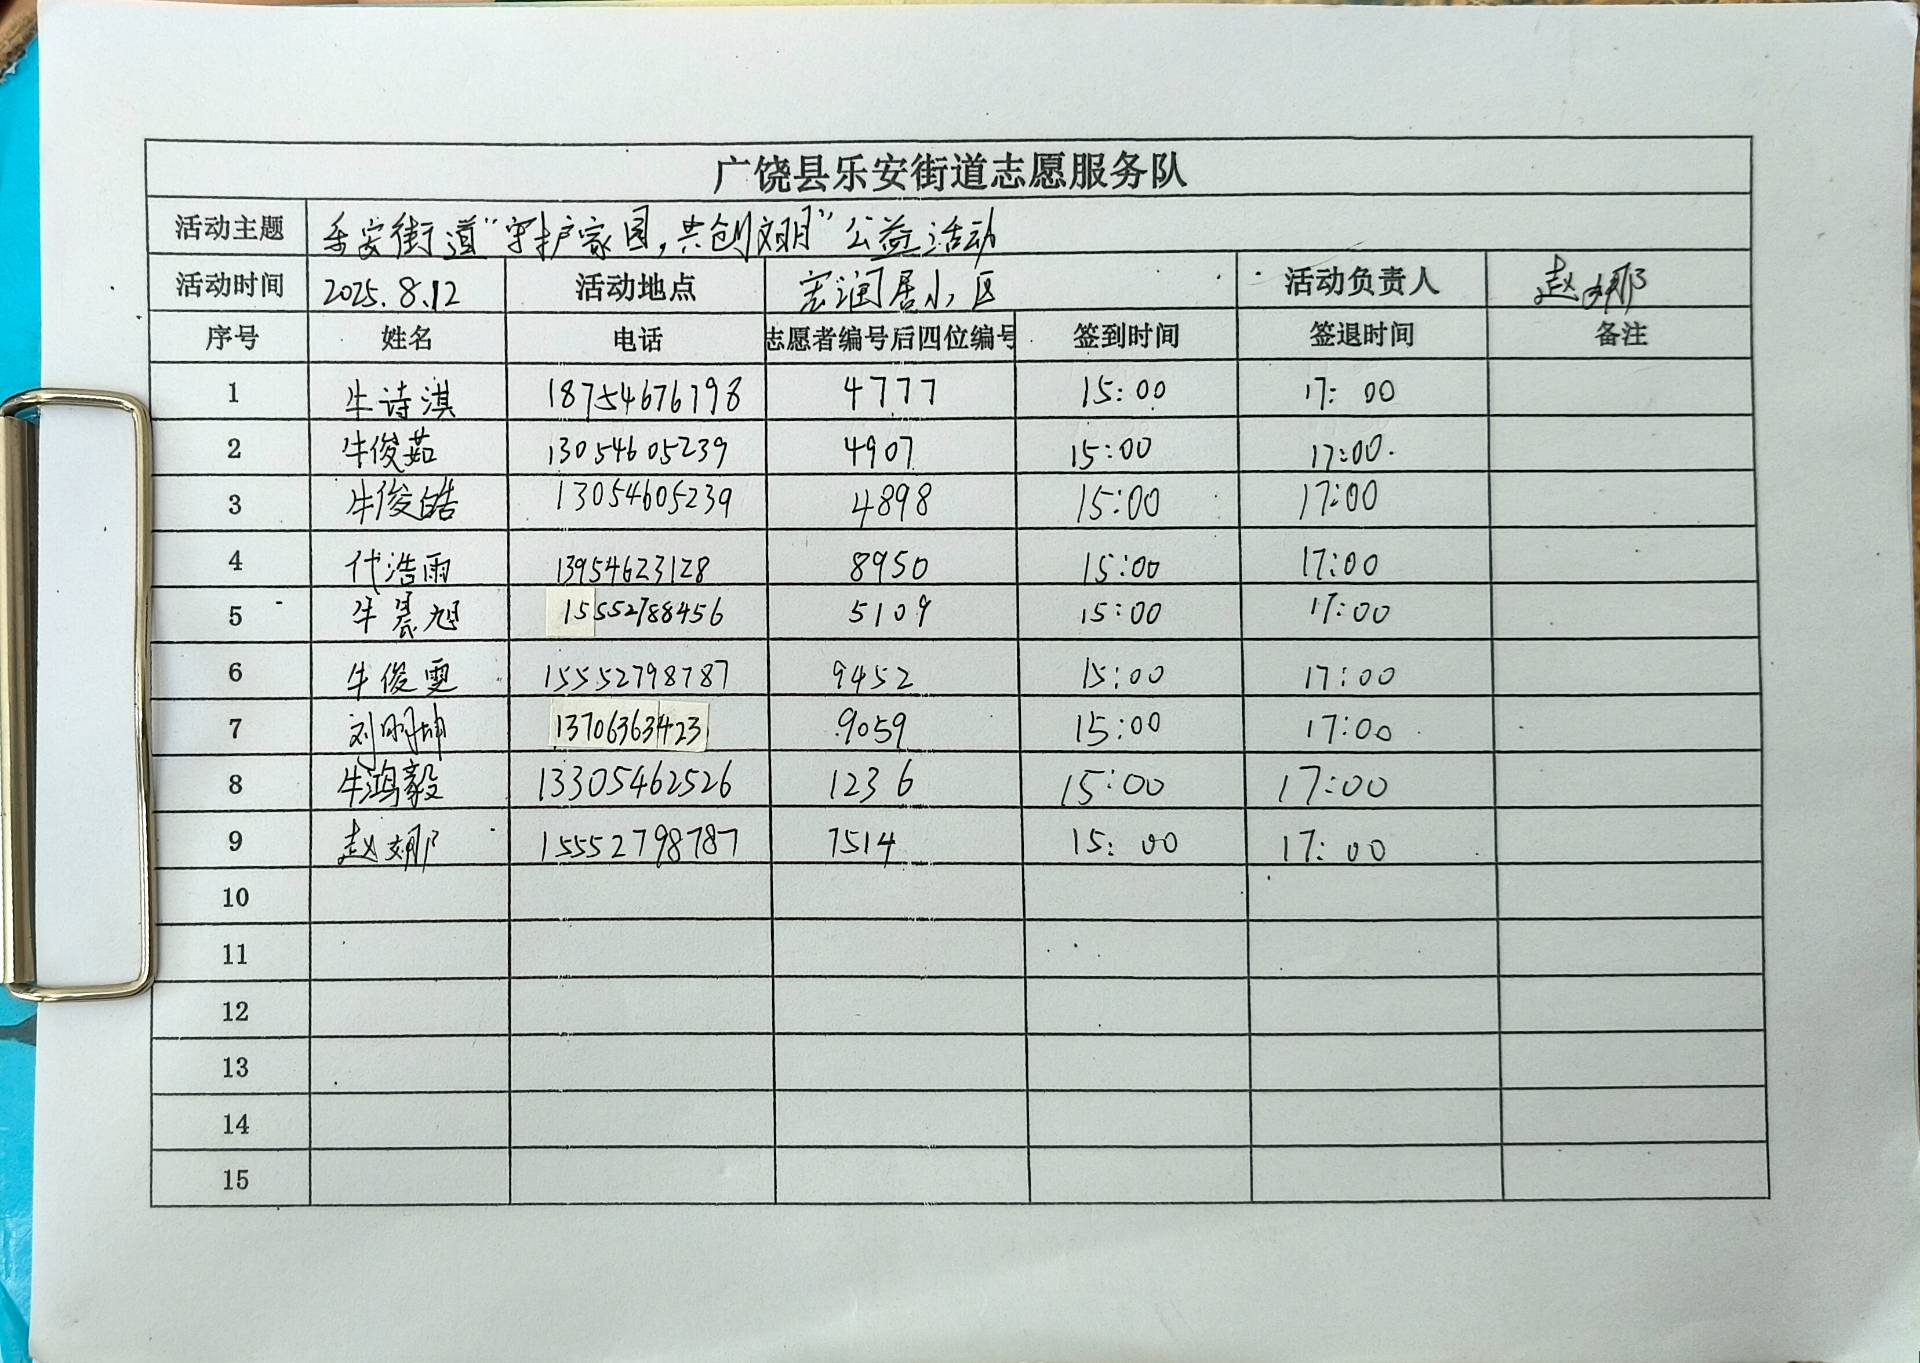 广饶县乐安街道志愿服务队
活动主题 乐安街道“守护家园,共创文明”公益活动
活动时间 2025.8.12 活动地点 宏润居小区 活动负责人 赵娜
序号 姓名 电话 志愿者编号后四位编号 签到时间 签退时间 备注
1 牛诗淇 18754676798 4777 15:00 17:00
2 牛俊茹 13054605239 4907 15:00 17:00.
3 牛俊皓 13054605239 4898 15:00 17:00
4 代浩雨 13954623128 8950 15:00 17:00
5 牛晨旭 15552788456 5109 15:00 17:00
6 牛俊雯 15552798787 9452 15:00 17:00
7 刘明坤 13706363423 9059 15:00 17:00
8 牛鸿毅 13305462526 1236 15:00 17:00
9 赵 15552798787 7514 15:00 17:00
10
11
12
13
14
15